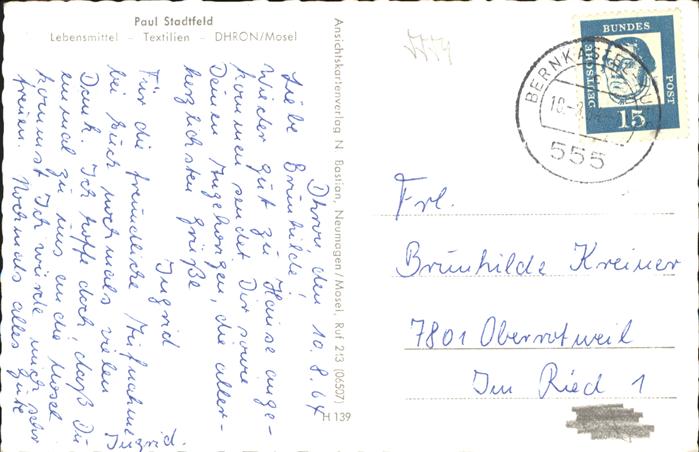 Paul Stadtfeld
Lebensmittel – Textilien – DHRON/Mosel
Dhron, den 10.8.64
Liebe Brünhilde!
Wieder gut zu Hause ange-
kommen sendet Dir sowie
Deinen Angehörigen, die aller-
herzlichsten Grüße
Ingrid
Für die freundliche Aufnahme
bei Euch nochmals vielen
Dank. Ich hoffe doch, daß Du
einmal zu uns an die Mosel
kommst. Ich würde mich sehr
freuen. Nochmals alles Gute
Ingrid.
Ansichtskartenverlag N. Bastian, Neumagen/Mosel, Ruf 213 (06507)
H 139
DEUTSCHE
BUNDES
POST
15
BERNKASTEL-KUES
555
Frl.
Brünhilde Kreiner
7801 Oberrotweil
Im Ried 1